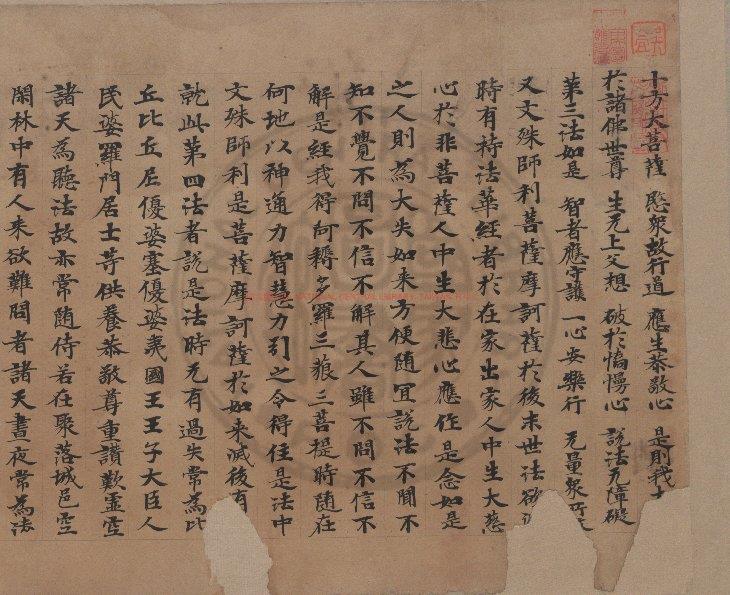 十方大菩薩 愍衆故行道 應生恭敬心 是則我大
於諸佛世尊 生无上父想 破於憍慢心 說法无障礙
第三法如是 智者應守護 一心安樂行 无量衆所
又文殊師利菩薩摩訶薩於後末世法欲
時有持法華經者於在家出家人中生大慈
心於非菩薩人中生大悲心應作是念如是
之人則為大失如来方便随冝說法不聞不
知不覺不問不信不解其人雖不問不信不
解是經我得阿耨多羅三藐三菩提時随在
何地以神通力智慧力引之令得住是法中
文殊師利是菩薩摩訶薩於如来滅後有
就此第四法者說是法時无有過失常為比
丘比丘尼優婆塞優婆夷國王王子大臣人
民婆羅門居士等供養恭敬尊重讚歎虛空
諸天為聽法故亦常随侍若在聚落城邑空
閑林中有人来欲難問者諸天晝夜常為法